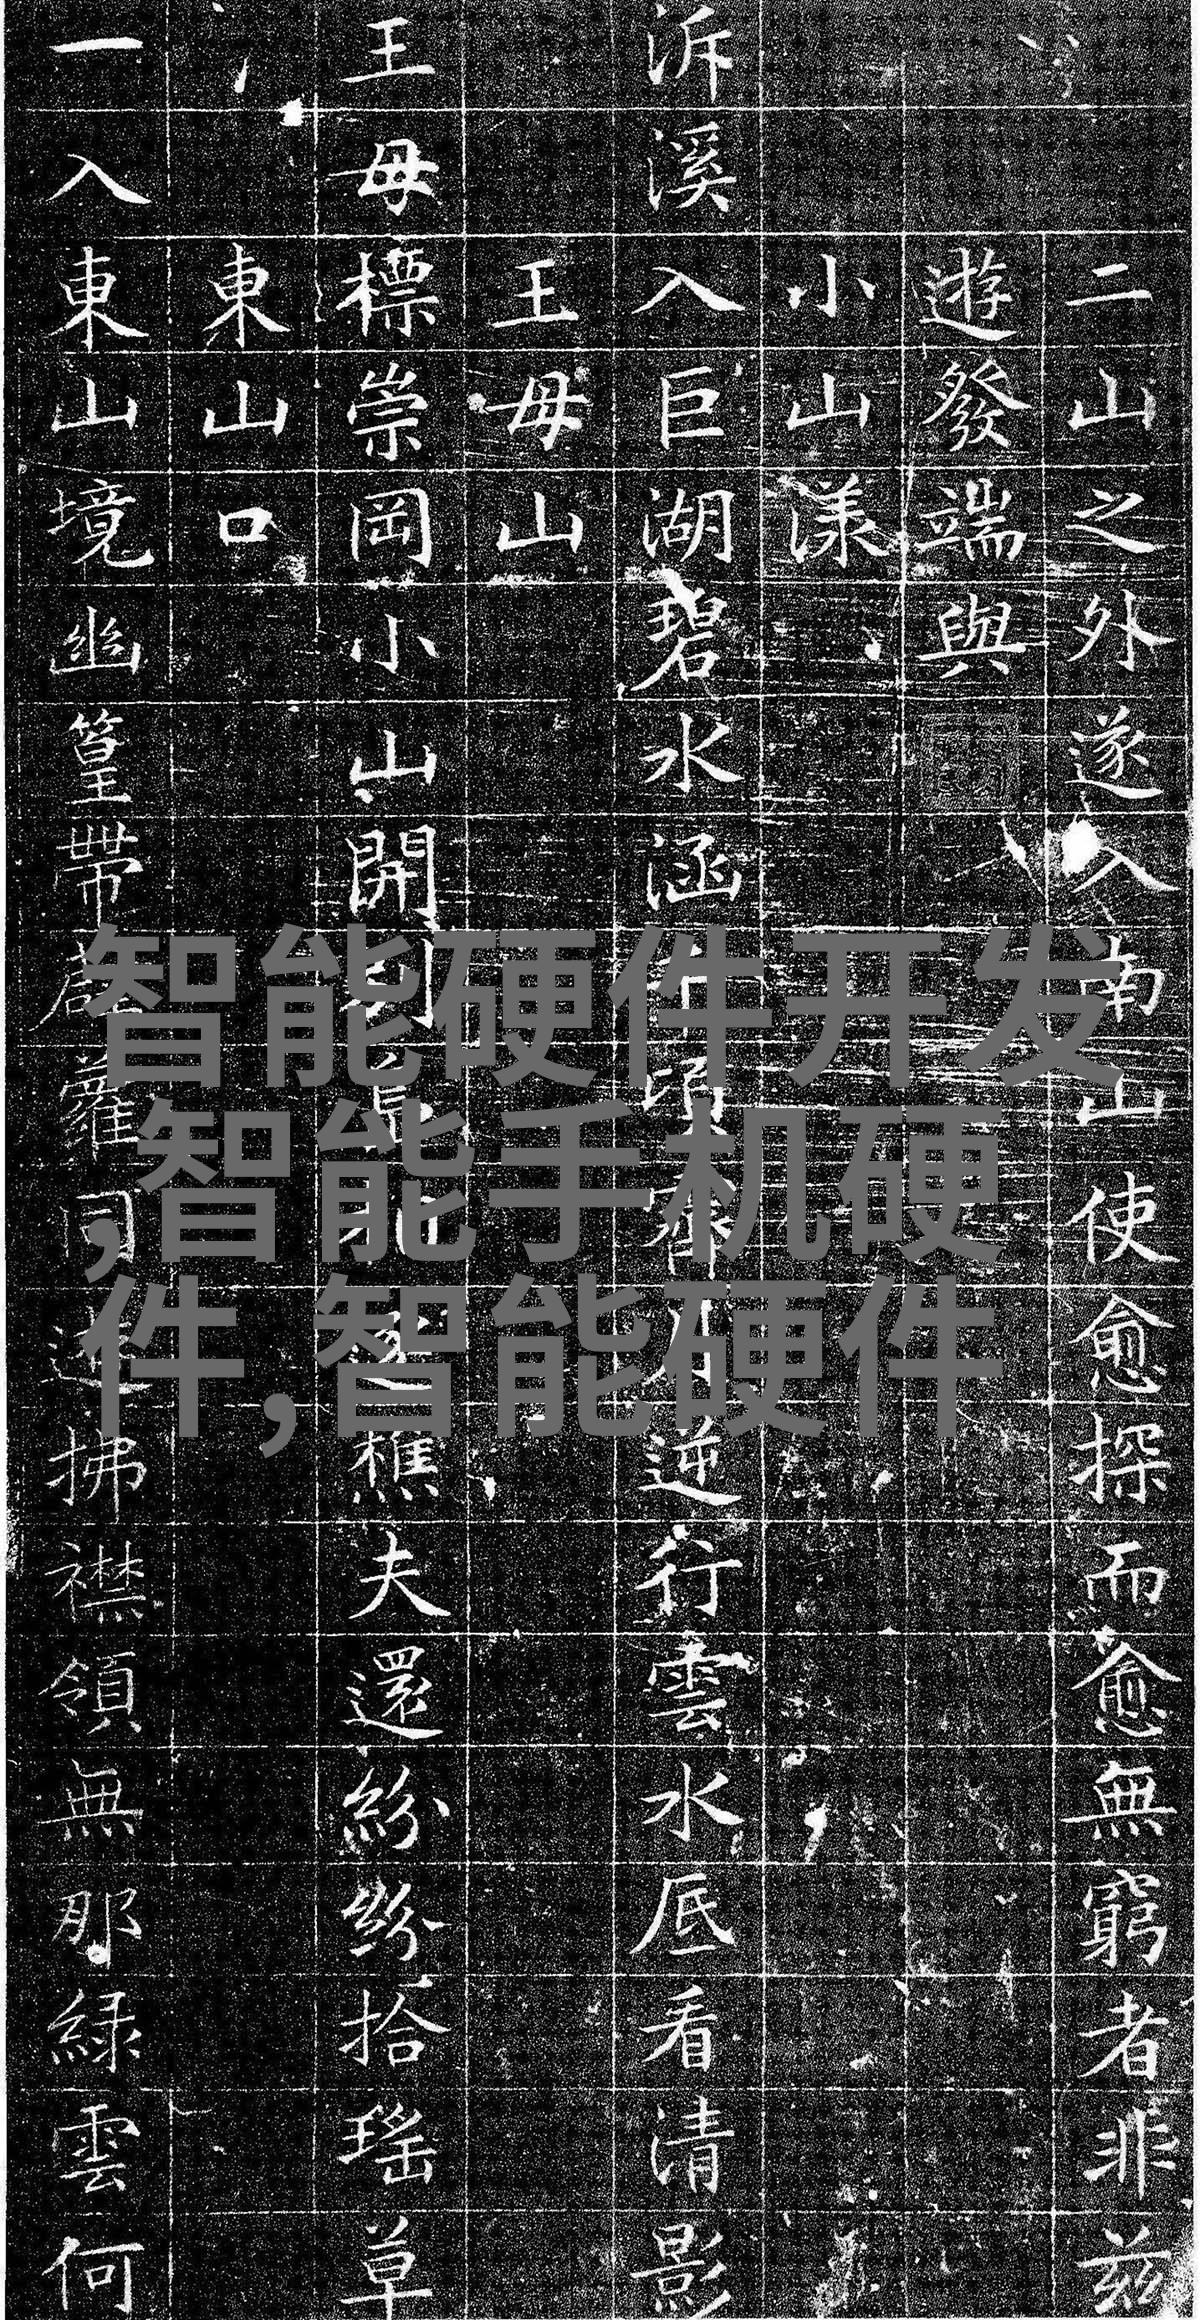 二山之外遂入南山使愈探而愈無窮者非茲
遊發端與
小山漾
泝溪入巨湖碧水涵頃逆行雲水底看清影
王母山
王母標崇岡小山開樵夫還紛紛拾瑤草
東山口
一入東山境幽篁帶蘿同拂襟領無那綠雲何
智能硬件开发
,智能手机硬
件,智能硬件